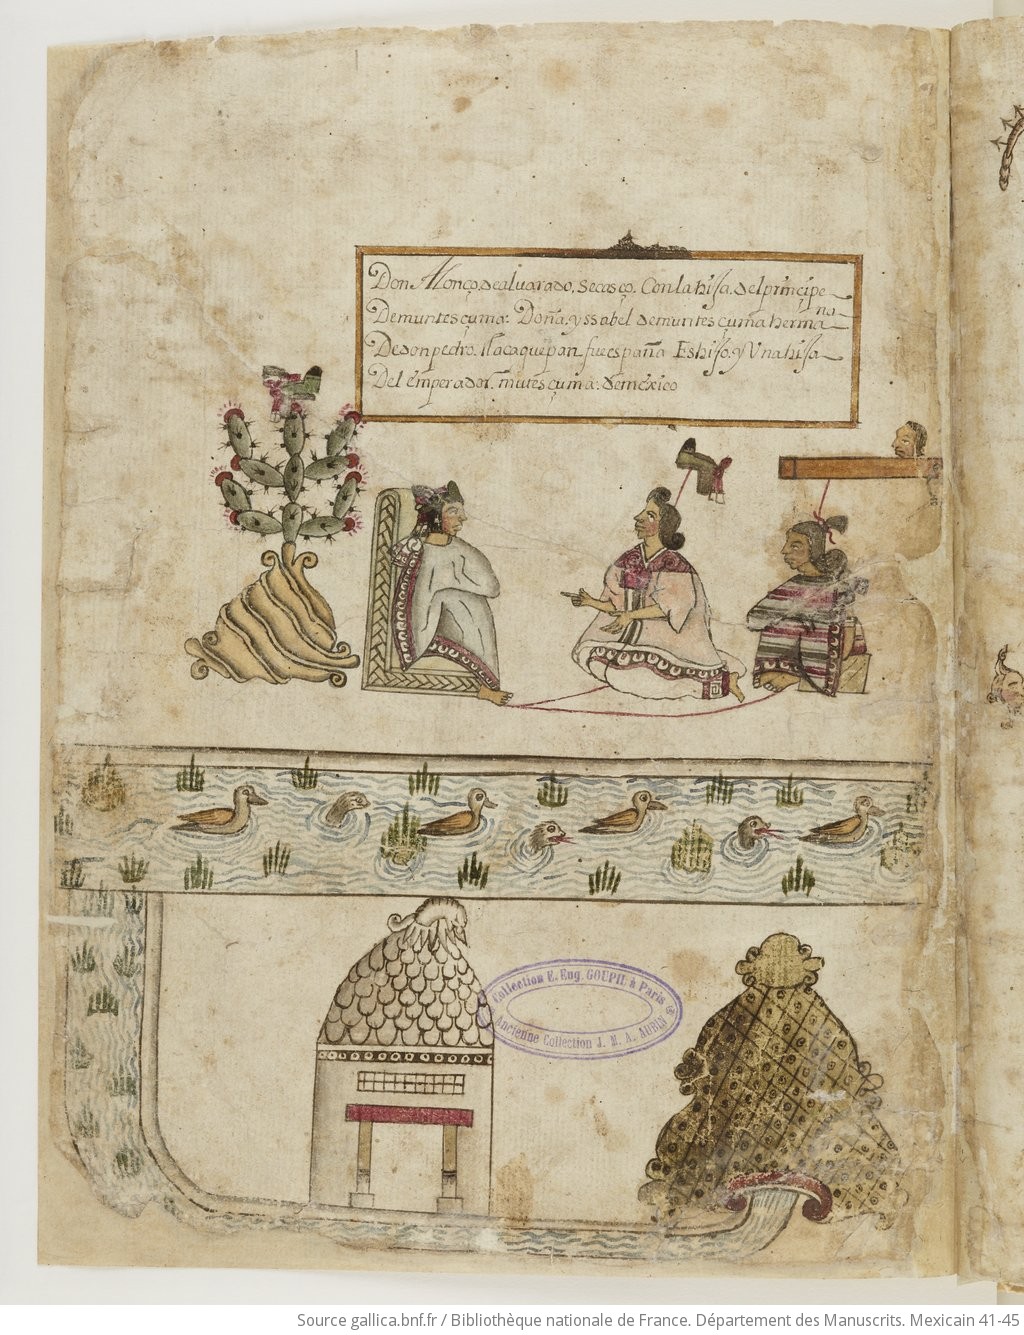 Don Alonço, dealuarado, secasço, Conlahisa, delprincipe
Demuntesçuma: Doña, yssabel demuntesçuma herma
na
Dedonpedro, tlacaquepan fueespaña Eshiso, yVnahisa
Del emperador, mutesçuma: demexico
Collection E. Eug. GOUPIL à Paris
Ancienne Collection J. M. A. AUBIN
Source gallica.bnf.fr / Bibliothèque nationale de France. Département des Manuscrits. Mexicain 41-45